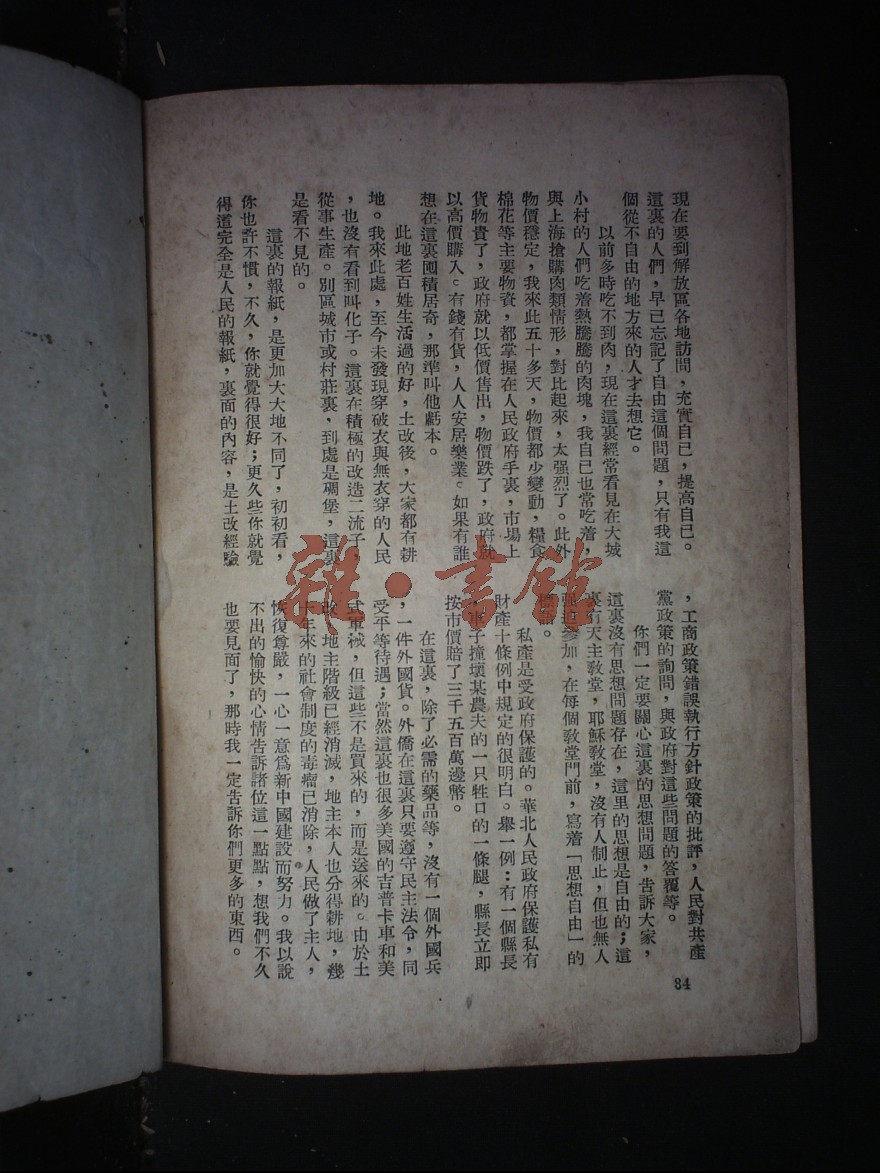 現在要到解放區各地訪問，充實自已，提高自己。
這裏的人們，早已忘記了自由這個問題，只有我這
個從不自由的地方來的人才去想它。
以前多時吃不到肉，現在這裏經常看見在大城
小村的人們吃着熱騰騰的肉塊，我自已也常吃着，
與上海搶購肉類情形，對比起來，太强烈了。此外
物價穩定，我來此五十多天，物價都少變動，糧食
棉花等主要物資，都掌握在人民政府手裏，市場上
貨物貴了，政府就以低價售出，物價跌了，政府就
以高價購入。有錢有貨，人人安居樂業。如果有誰
想在這裏囤積居奇，那準叫他虧本。
此地老百姓生活過的好，土改後，大家都有耕
地。我來此處，至今未發現穿破衣與無衣穿的人民
，也沒有看到叫化子。這裏在積極的改造二流子，
從事生產。別區城市或村莊裏，到處是碉堡，這裏
是看不見的。
這裏的報紙，是更加大大地不同了，初初看，
你也許不慣，不久，你就覺得很好；更久些你就覺
得道完全是人民的報紙，裏面的內容，是土改經驗
，工商政策錯誤執行方針政策的批評，人民對共產
黨政策的詢問，與政府對這些問題的答覆等。
你們一定要關心這裏的思想問題，告訴大家，
這裏沒有思想問題存在，這里的思想是自由的；這
裏有天主教堂，耶穌教堂，沒有人制止，但也無人
強迫參加，在每個教堂門前，寫着「思想自由」的
。
私產是受政府保護的。華北人民政府保護私有
財產十條例中規定的很明白。舉一例：有一個縣長
，車子撞壞某農夫的一只牲口的一條腿，縣長立即
按市價賠了三千五百萬邊幣。
在這裏，除了必需的藥品等，沒有一個外國兵
，一件外國貨。外僑在這裏只要遵守民主法令，同
受平等待遇；當然這裏也很多美國的吉普卡車和美
式軍械，但這些不是買來的，而是送來的。由於土
改，地主階級已經消滅，地主本人也分得耕地，幾
千年來的社會制度的毒瘤已消除，人民做了主人，
恢復尊嚴，一心一意爲新中國建設而努力。我以說
不出的愉快的心情告訴諸位這一點點，想我們不久
也要見面了，那時我一定告訴你們更多的東西。
84
雜·書館